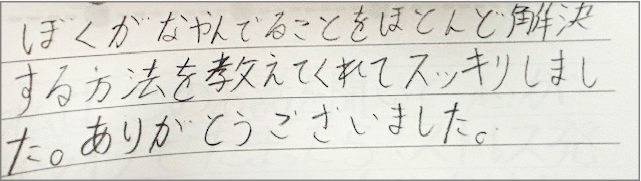 ぼくがなやんでることをほとんど解決
する方法を教えてくれてスッキリしまし
た。ありがとうございました。